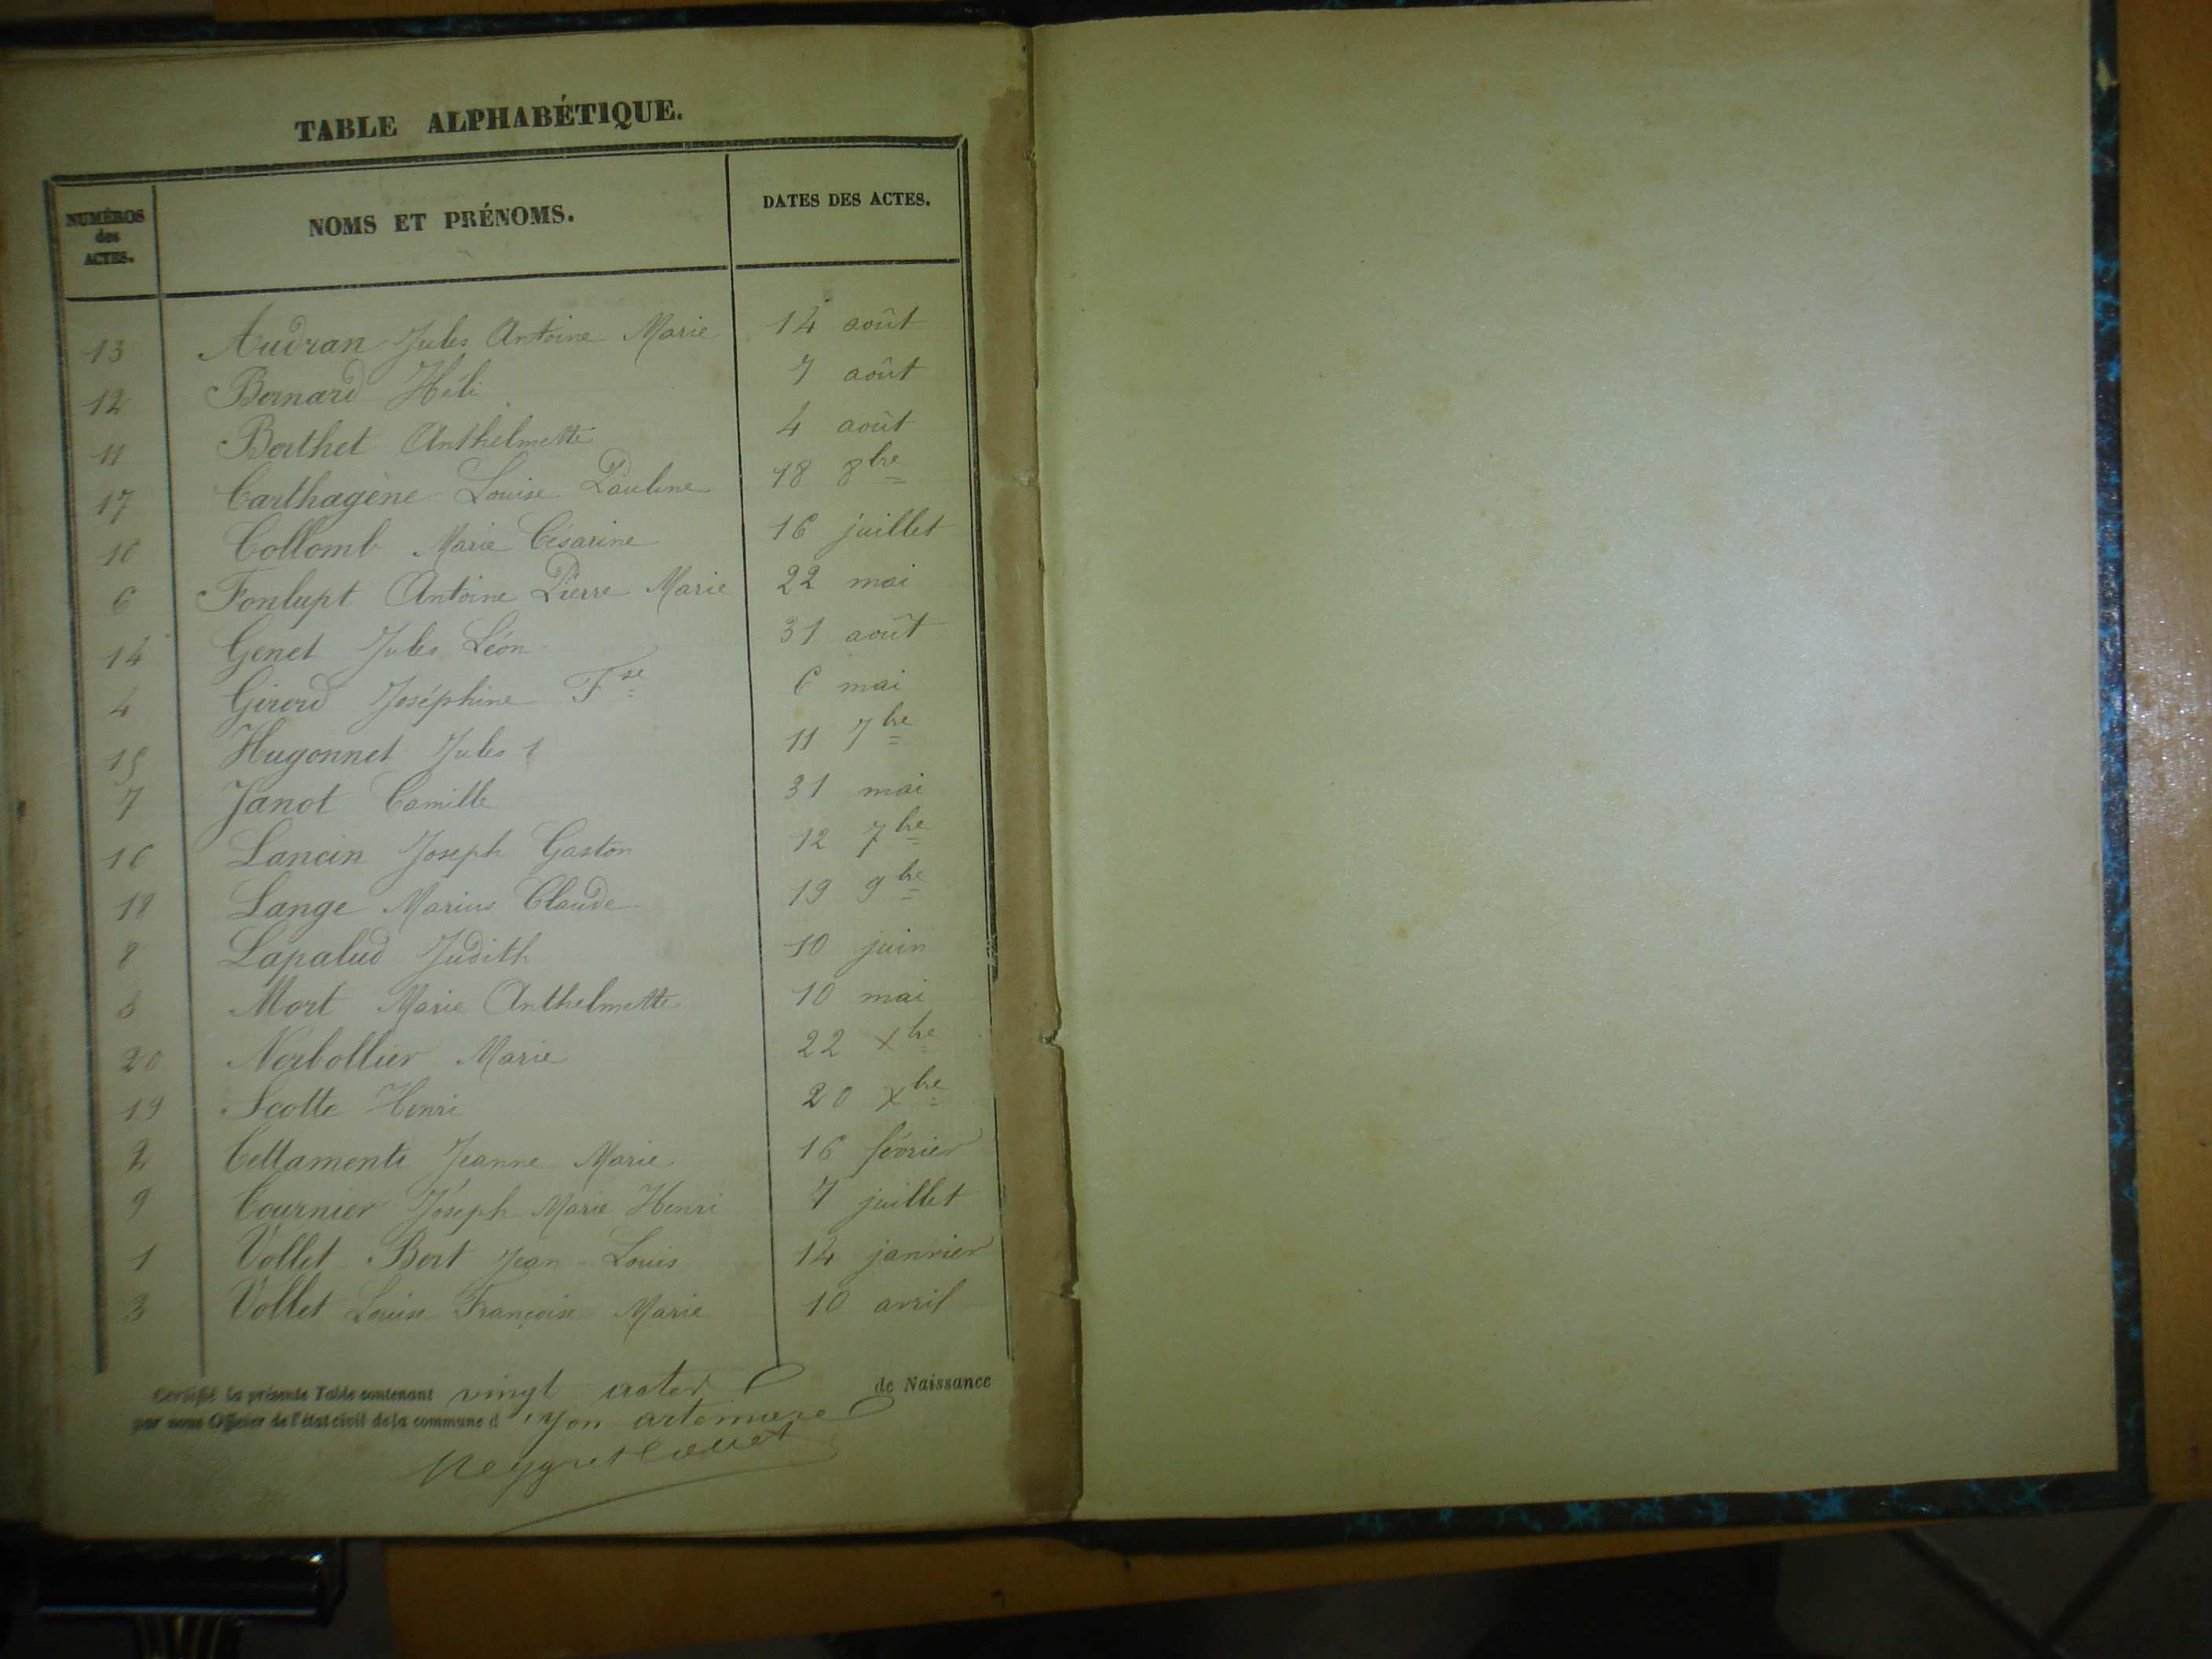 TABLE ALPHABÉTIQUE.
NUMÉROS des ACTES. NOMS ET PRÉNOMS. DATES DES ACTES.
13 Audran Jules Antoine Marie 14 août
12 Bernard Héli 7 août
11 Berthet Anthelmette 4 août
17 Carthagène Louise Pauline 18 8bre
10 Collomb Marie Césarine 16 juillet
6 Fonlupt Antoine Pierre Marie 22 mai
14 Genet Jules Léon 31 août
4 Girerd Joséphine Fse 6 mai
15 Hugonnet Jules 11 7bre
7 Janot Camille 31 mai
16 Lancin Joseph Gaston 12 7bre
18 Lange Marius Claude 19 9bre
8 Lapalud Judith 10 juin
5 Mort Marie Anthelmette 10 mai
20 Nerbollier Marie 22 Xbre
19 Scotte Henri 20 Xbre
2 Tettamenti Jeanne Marie 16 février
9 Tournier Joseph Marie Henri 7 juillet
1 Vollet Bert Jean-Louis 14 janvier
3 Vollet Louise Françoise Marie 10 avril
Certifié la présente Table contenant vingt actes de Naissance
par nous Officier de l'état civil de la commune d'Yon artemare